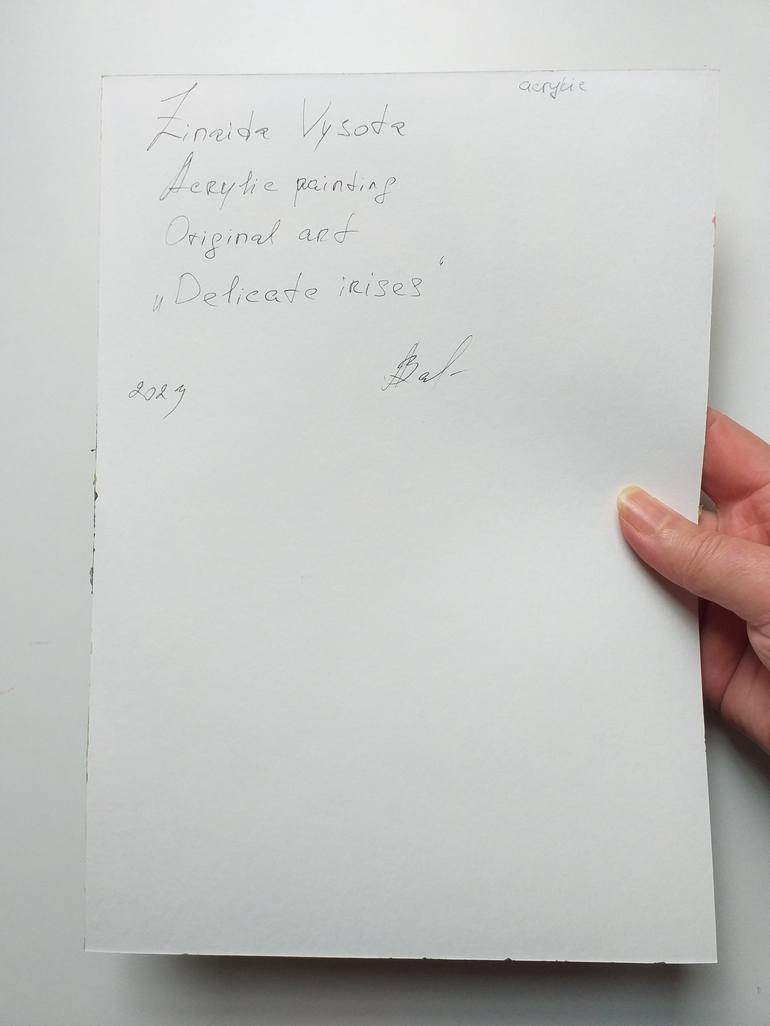 acrylic
Zinaida Vysota
Acrylic painting
Original art
„Delicate irises“
2024